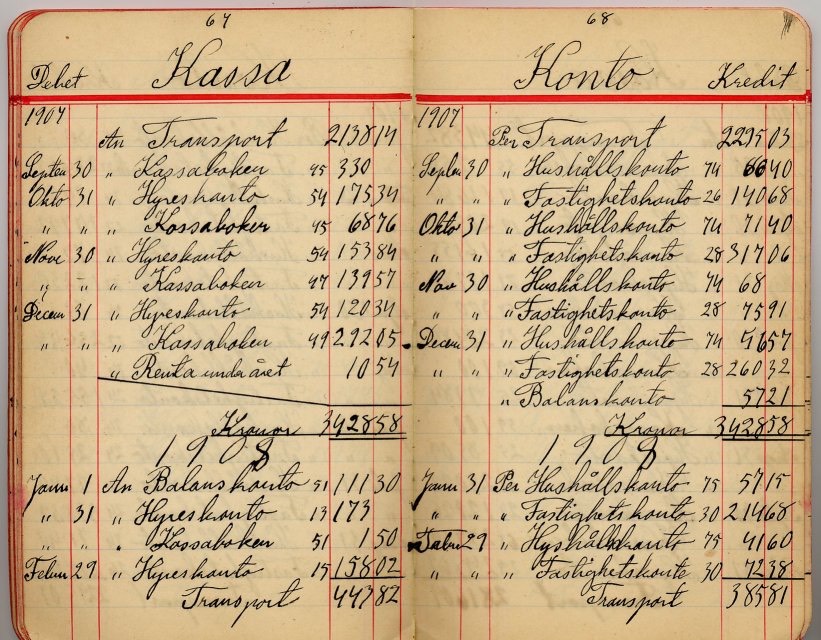 67
Debet Kassa
1907
An Transport 2138 14
Septem 30 " Kassaboken 45 330
Okto 31 " Hyreskonto 54 175 34
" " " Kassaboken 45 68 76
Nove 30 " Hyreskonto 54 153 84
" " " Kassaboken 47 139 57
Decem 31 " Hyreskonto 54 120 34
" " " Kassaboken 49 292 05
" Renta under året 10 54
Kronor 3428 58
1908
Janu 1 An Balanskonto 51 111 30
" 31 " Hyreskonto 13 173
" " " Kassaboken 51 1 50
Febru 29 " Hyreskonto 15 158 02
Transport 443 82
68
Konto Kredit
1907
Per Transport 2295 03
Septem 30 " Hushållskonto 74 66 40
" " " Fastighetskonto 26 140 68
Okto 31 " Hushållskonto 74 71 40
" " " Fastighetskonto 28 317 06
Nov 30 " Hushållskonto 74 68
" " " Fastighetskonto 28 75 91
Decem 31 " Hushållskonto 74 57
" " " Fastighetskonto 28 260 32
" Balanskonto 57 21
Kronor 3428 58
1908
Janu 31 Per Hushållskonto 75 57 15
" " " Fastighetskonto 30 214 68
Febru 29 " Hushållskonto 75 41 60
" " " Fastighetskonto 30 72 38
Transport 385 81